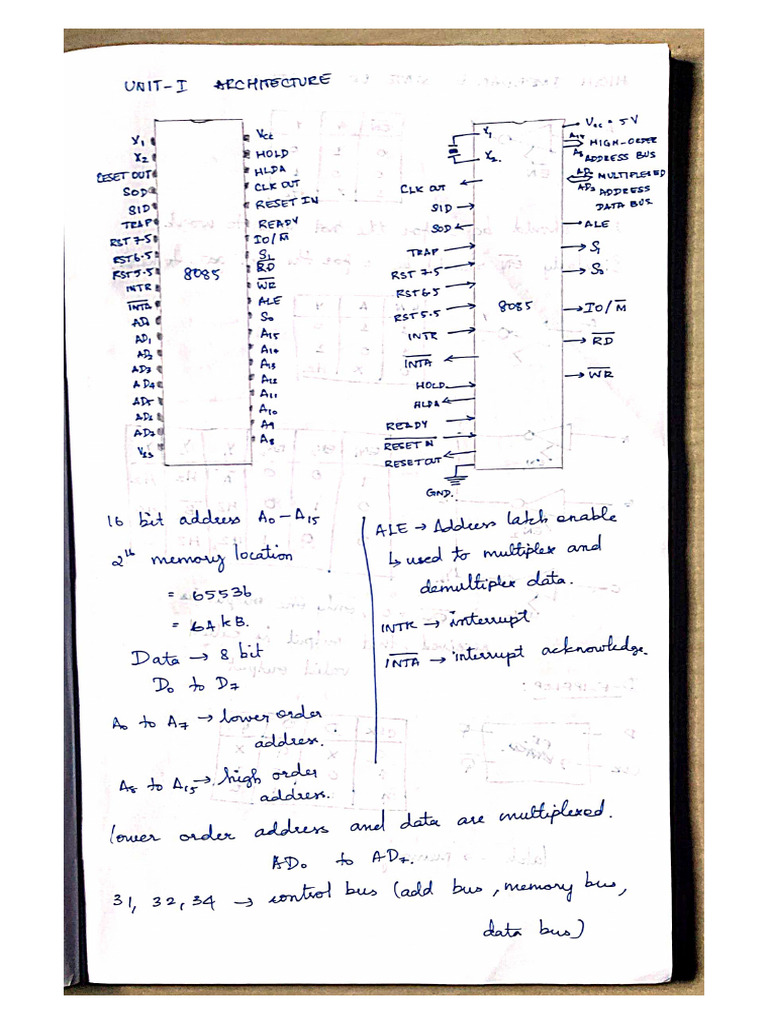 UNIT-I ARCHITECTURE
X1
X2
RESET OUT
SOD
SID
TRAP
RST 7.5
RST 6.5
RST 5.5
INTR
I̅N̅T̅A̅
AD1
AD2
AD3
AD4
VSS
8085
VCC
HOLD
HLDA
CLK OUT
RESET IN
READY
IO/M̅
S1
R̅D̅
W̅R̅
ALE
S0
A15
A14
A13
A12
A11
A10
A9
A8
X1
X2.
CLK OUT
SID
SOD
TRAP
RST 7.5
RST 6.5
RST 5.5
INTR
I̅N̅T̅A̅
HOLD
HLDA
READY
R̅E̅S̅E̅T̅ I̅N̅
RESET OUT
GND.
8085
Vcc = 5V
A15
HIGH-ORDER
A8 ADDRESS BUS
MULTIPLEXED
ADDRESS
DATA BUS
ALE
S1
S0
IO/M̅
R̅D̅
W̅R̅
16 bit address A0 – A15
2^16 memory location
= 65536
= 64 kB.
Data → 8 bit
D0 to D7
A0 to A7 → lower order
address.
A8 to A15 → high order
address.
ALE → Address latch enable
↳ used to multiplex and
demultiplex data.
INTR → interrupt
I̅N̅T̅A̅ → interrupt acknowledge.
lower order address and data are multiplexed.
AD0 to AD7.
31, 32, 34 → control bus (add bus, memory bus,
data bus)